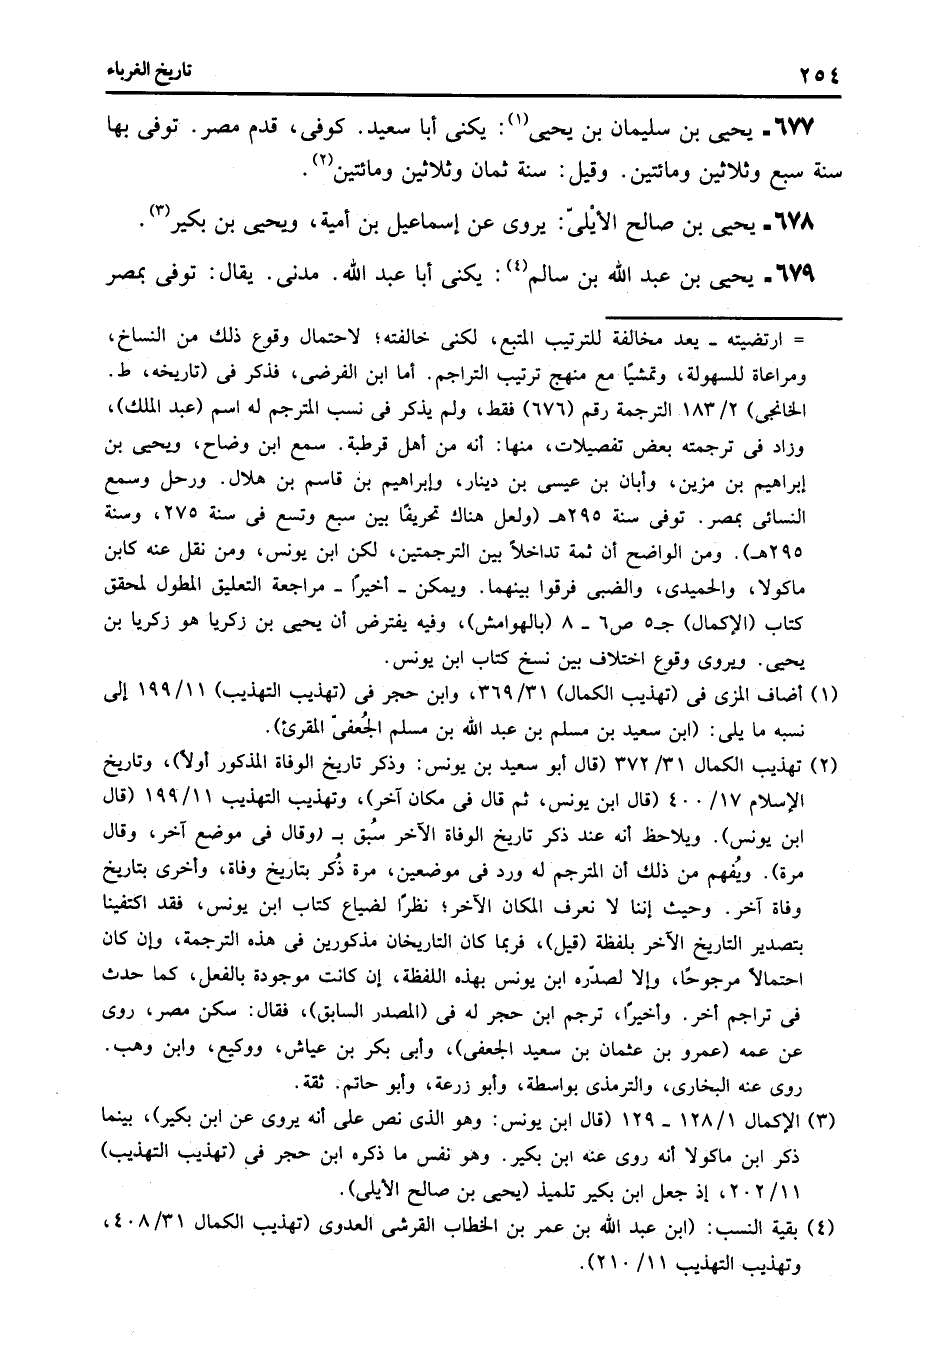 ٢٥٤ تاريخ الغرباء
٦٧٧ـ يحيى بن سليمان بن يحيى(١): يكنى أبا سعيد. كوفى، قدم مصر. توفى بها
سنة سبع وثلاثين ومائتين. وقيل: سنة ثمان وثلاثين ومائتين(٢).
٦٧٨ـ يحيى بن صالح الأيْلىّ: يروى عن إسماعيل بن أمية، ويحيى بن بكير(٣).
٦٧٩ـ يحيى بن عبد الله بن سالم(٤): يكنى أبا عبد الله. مدنى. يقال: توفى بمصر
= ارتضيته ـ يعد مخالفة للترتيب المتبع، لكنى خالفته؛ لاحتمال وقوع ذلك من النساخ،
ومراعاة للسهولة، وتمشيًا مع منهج ترتيب التراجم. أما ابن الفرضى، فذكر فى (تاريخه، ط.
الخانجى) ٢/ ١٨٣ الترجمة رقم (٦٧٦) فقط، ولم يذكر فى نسب المترجم له اسم (عبد الملك)،
وزاد فى ترجمته بعض تفصيلات، منها: أنه من أهل قرطبة. سمع ابن وضاح، ويحيى بن
إبراهيم بن مزين، وأبان بن عيسى بن دينار، وإبراهيم بن قاسم بن هلال. ورحل وسمع
النسائى بمصر. توفى سنة ٢٩٥هـ (ولعل هناك تحريفًا بين سبع وتسع فى سنة ٢٧٥، وسنة
٢٩٥هـ). ومن الواضح أن ثمة تداخلاً بين الترجمتين، لكن ابن يونس، ومن نقل عنه كابن
ماكولا، والحميدى، والضبى فرقوا بينهما. ويمكن ـ أخيرًا ـ مراجعة التعليق المطول لمحقق
كتاب (الإكمال) جـ٥ ص٦ ـ ٨ (بالهوامش)، وفيه يفترض أن يحيى بن زكريا هو زكريا بن
يحيى. ويروى وقوع اختلاف بين نسخ كتاب ابن يونس.
(١) أضاف المزى فى (تهذيب الكمال) ٣١/ ٣٦٩، وابن حجر فى (تهذيب التهذيب) ١١/ ١٩٩ إلى
نسبه ما يلى: (ابن سعيد بن مسلم بن عبد الله بن مسلم الجُعفىّ المقرئ).
(٢) تهذيب الكمال ٣١/ ٣٧٢ (قال أبو سعيد بن يونس: وذكر تاريخ الوفاة المذكور أولاً)، وتاريخ
الإسلام ١٧/ ٤٠٠ (قال ابن يونس، ثم قال فى مكان آخر)، وتهذيب التهذيب ١١/ ١٩٩ (قال
ابن يونس). ويلاحظ أنه عند ذكر تاريخ الوفاة الآخر سُبق بـ (وقال فى موضع آخر، وقال
مرة). ويُفهم من ذلك أن المترجم له ورد فى موضعين، مرة ذُكر بتاريخ وفاة، وأخرى بتاريخ
وفاة آخر. وحيث إننا لا نعرف المكان الآخر؛ نظرًا لضياع كتاب ابن يونس، فقد اكتفينا
بتصدير التاريخ الآخر بلفظة (قيل)، فربما كان التاريخان مذكورين فى هذه الترجمة، وإن كان
احتمالاً مرجوحًا، وإلا لصدّره ابن يونس بهذه اللفظة، إن كانت موجودة بالفعل، كما حدث
فى تراجم أخر. وأخيرًا، ترجم ابن حجر له فى (المصدر السابق)، فقال: سكن مصر، روى
عن عمه (عمرو بن عثمان بن سعيد الجعفى)، وأبى بكر بن عياش، ووكيع، وابن وهب.
روى عنه البخارى، والترمذى بواسطة، وأبو زرعة، وأبو حاتم. ثقة.
(٣) الإكمال ١/ ١٢٨ ـ ١٢٩ (قال ابن يونس: وهو الذى نص على أنه يروى عن ابن بكير)، بينما
ذكر ابن ماكولا أنه روى عنه ابن بكير. وهو نفس ما ذكره ابن حجر فى (تهذيب التهذيب)
١١/ ٢٠٢، إذ جعل ابن بكير تلميذ (يحيى بن صالح الأيلى).
(٤) بقية النسب: (ابن عبد الله بن عمر بن الخطاب القرشى العدوى (تهذيب الكمال ٣١/ ٤٠٨،
وتهذيب التهذيب ١١/ ٢١٠).